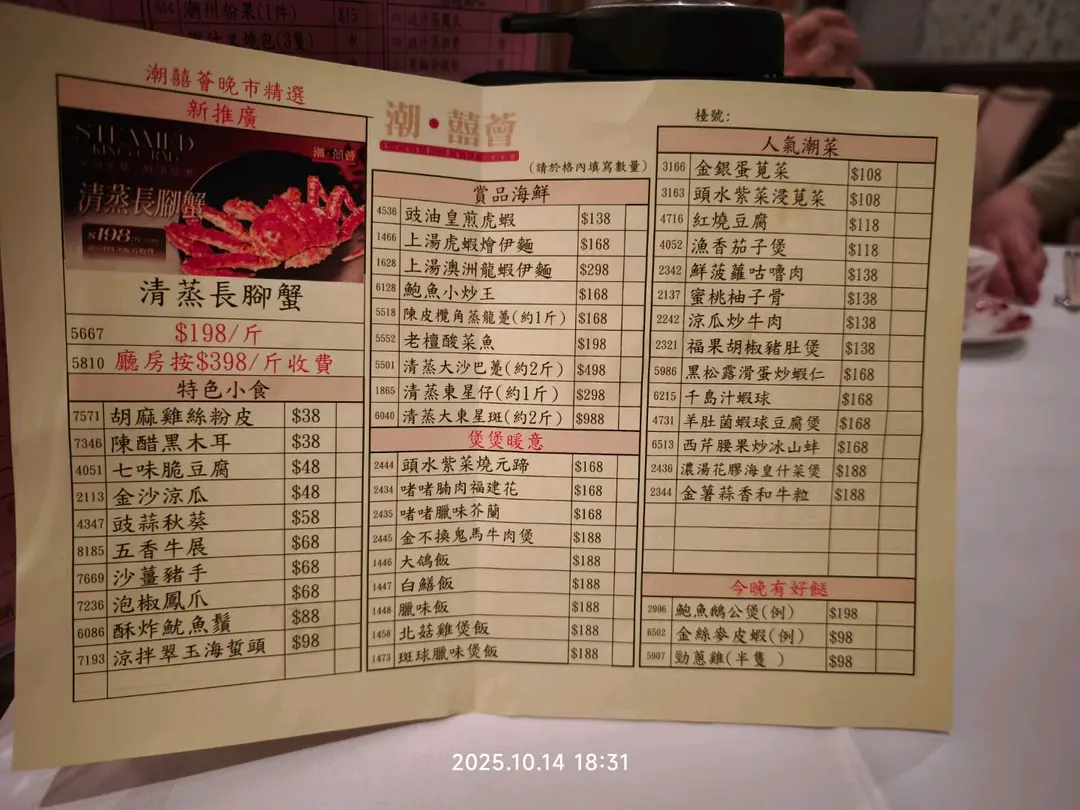 614 潮州粉果(1件) $15
潮囍薈晚市精選
新推廣
STEAMED
KING CRAB
潮·囍薈
清蒸長腳蟹
$198/
清蒸長腳蟹
5667 $198/斤
5810 廳房按$398/斤收費
特色小食
7571 胡麻雞絲粉皮 $38
7346 陳醋黑木耳 $38
4051 七味脆豆腐 $48
2113 金沙涼瓜 $48
4347 豉蒜秋葵 $58
8185 五香牛展 $68
7669 沙薑豬手 $68
7236 泡椒鳳爪 $68
6086 酥炸魷魚鬚 $88
7193 涼拌翠玉海蜇頭 $98
潮·囍薈
(請於格內填寫數量)
賞品海鮮
4536 豉油皇煎虎蝦 $138
1466 上湯虎蝦燴伊麵 $168
1628 上湯澳洲龍蝦伊麵 $298
6128 鮑魚小炒王 $168
5518 陳皮欖角蒸龍躉(約1斤) $168
5552 老檀酸菜魚 $198
5501 清蒸大沙巴躉(約2斤) $498
1865 清蒸東星仔(約1斤) $298
6040 清蒸大東星斑(約2斤) $988
煲煲暖意
2444 頭水紫菜燒元蹄 $168
2434 啫啫腩肉福建花 $168
2435 啫啫臘味芥蘭 $168
2445 金不換鬼馬牛肉煲 $188
1446 大鴿飯 $188
1447 白鱔飯 $188
1448 臘味飯 $188
1458 北菇雞煲飯 $188
1473 斑球臘味煲飯 $188
檯號:
人氣潮菜
3166 金銀蛋莧菜 $108
3163 頭水紫菜浸莧菜 $108
4716 紅燒豆腐 $118
4052 漁香茄子煲 $118
2342 鮮菠蘿咕嚕肉 $138
2137 蜜桃柚子骨 $138
2242 涼瓜炒牛肉 $138
2321 福果胡椒豬肚煲 $138
5986 黑松露滑蛋炒蝦仁 $168
6215 千島汁蝦球 $168
4731 羊肚菌蝦球豆腐煲 $168
6513 西芹腰果炒冰山蚌 $168
2436 濃湯花膠海皇什菜煲 $188
2344 金薯蒜香和牛粒 $188
今晚有好餸
2996 鮑魚鵝公煲(例) $198
6502 金絲麥皮蝦(例) $98
5907 勁蔥雞(半隻 ) $98
2025.10.14 18:31